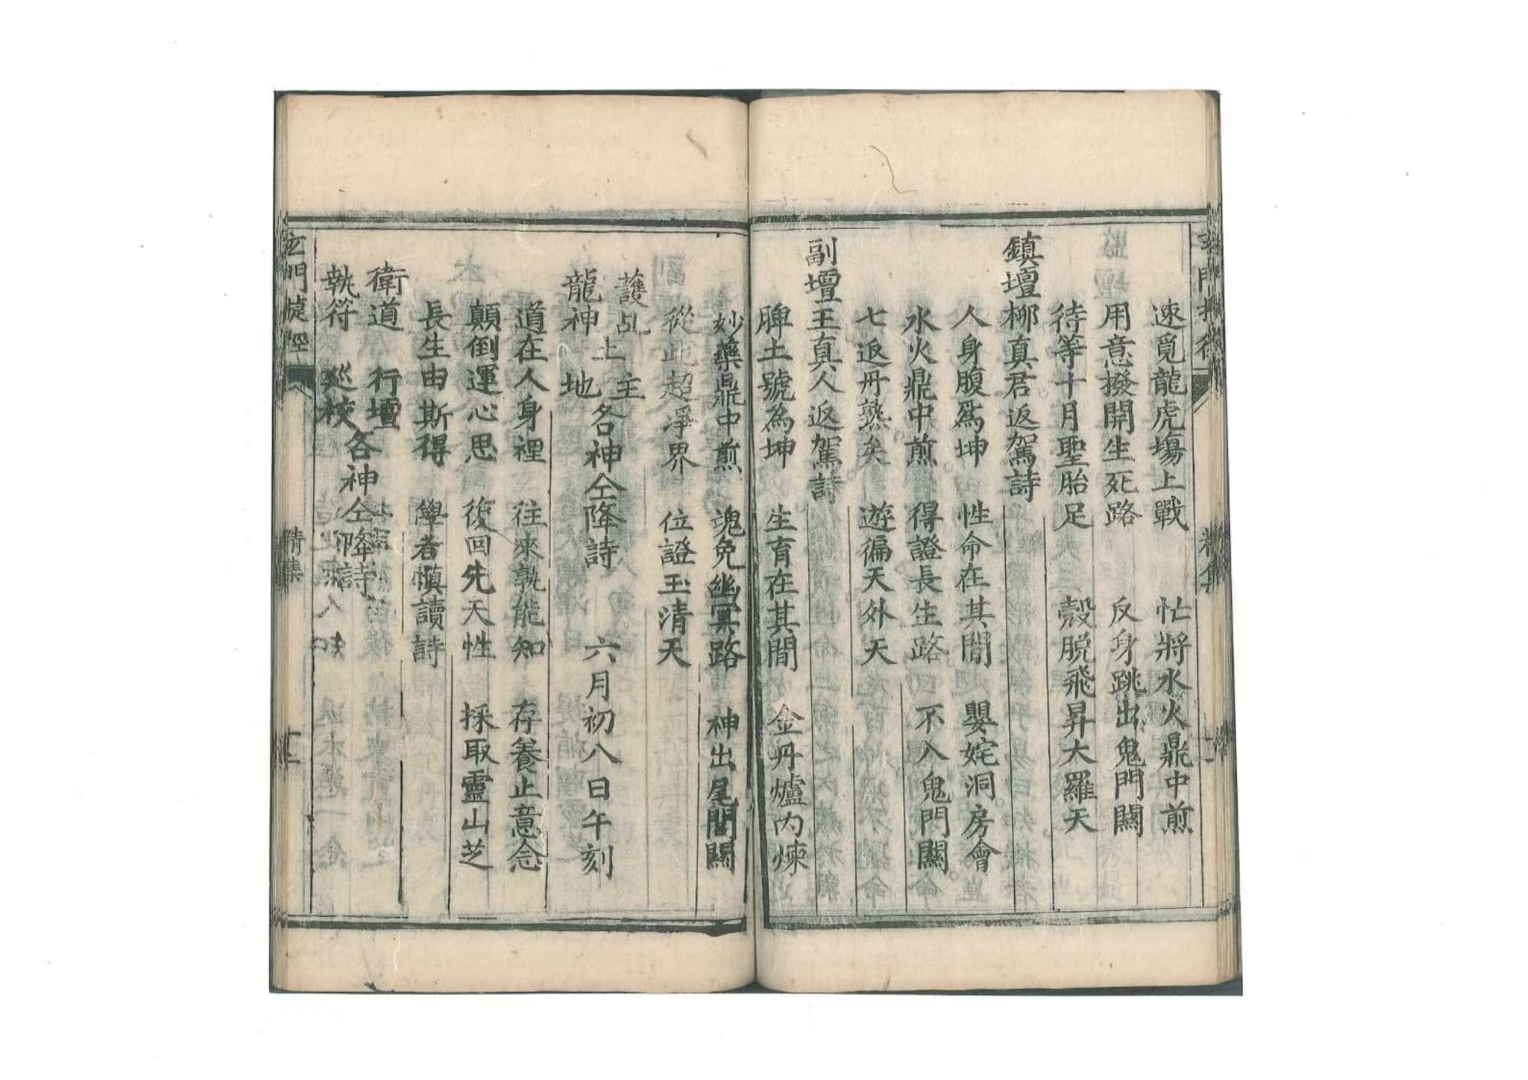 速覓龍虎塲上戰 忙將水火鼎中煎
用意撥開生死路 反身跳出鬼門關
待等十月聖胎足 殼脱飛昇大羅天
鎮壇柳真君返駕詩
人身腹爲坤 性命在其間 嬰姹洞房會
水火鼎中煎 得證長生路 不入鬼門關
七返丹熟矣 遊徧天外天
副壇王真人返駕詩
脾土號為坤 生育在其間 金丹爐内煉
妙藥鼎中煎 魂免幽冥路 神出尾閭關
從此超凈界 位證玉清天
護乩 土主
龍神 土地 各神仝降詩 六月初八日午刻
道在人身裡 往來孰能知 存養止意念
顛倒運心思 復回先天性 採取靈山芝
長生由斯得 學者慎讀詩
衛道 行壇
執符 巡校 各神仝降詩
玄門捷徑 精集